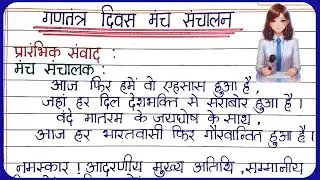 गणतंत्र दिवस मंच संचालन
प्रारंभिक संवाद :
मंच संचालक :
आज फिर हमें वो एहसास हुआ है ,
जहां हर दिल देशभक्ति से सराबोर हुआ है ।
वंदे मातरम के जयघोष के साथ ,
आज हर भारतवासी फिर गौरवान्वित हुआ है ।
नमस्कार ! आदरणीय मुख्य अतिथि , सम्मानीय